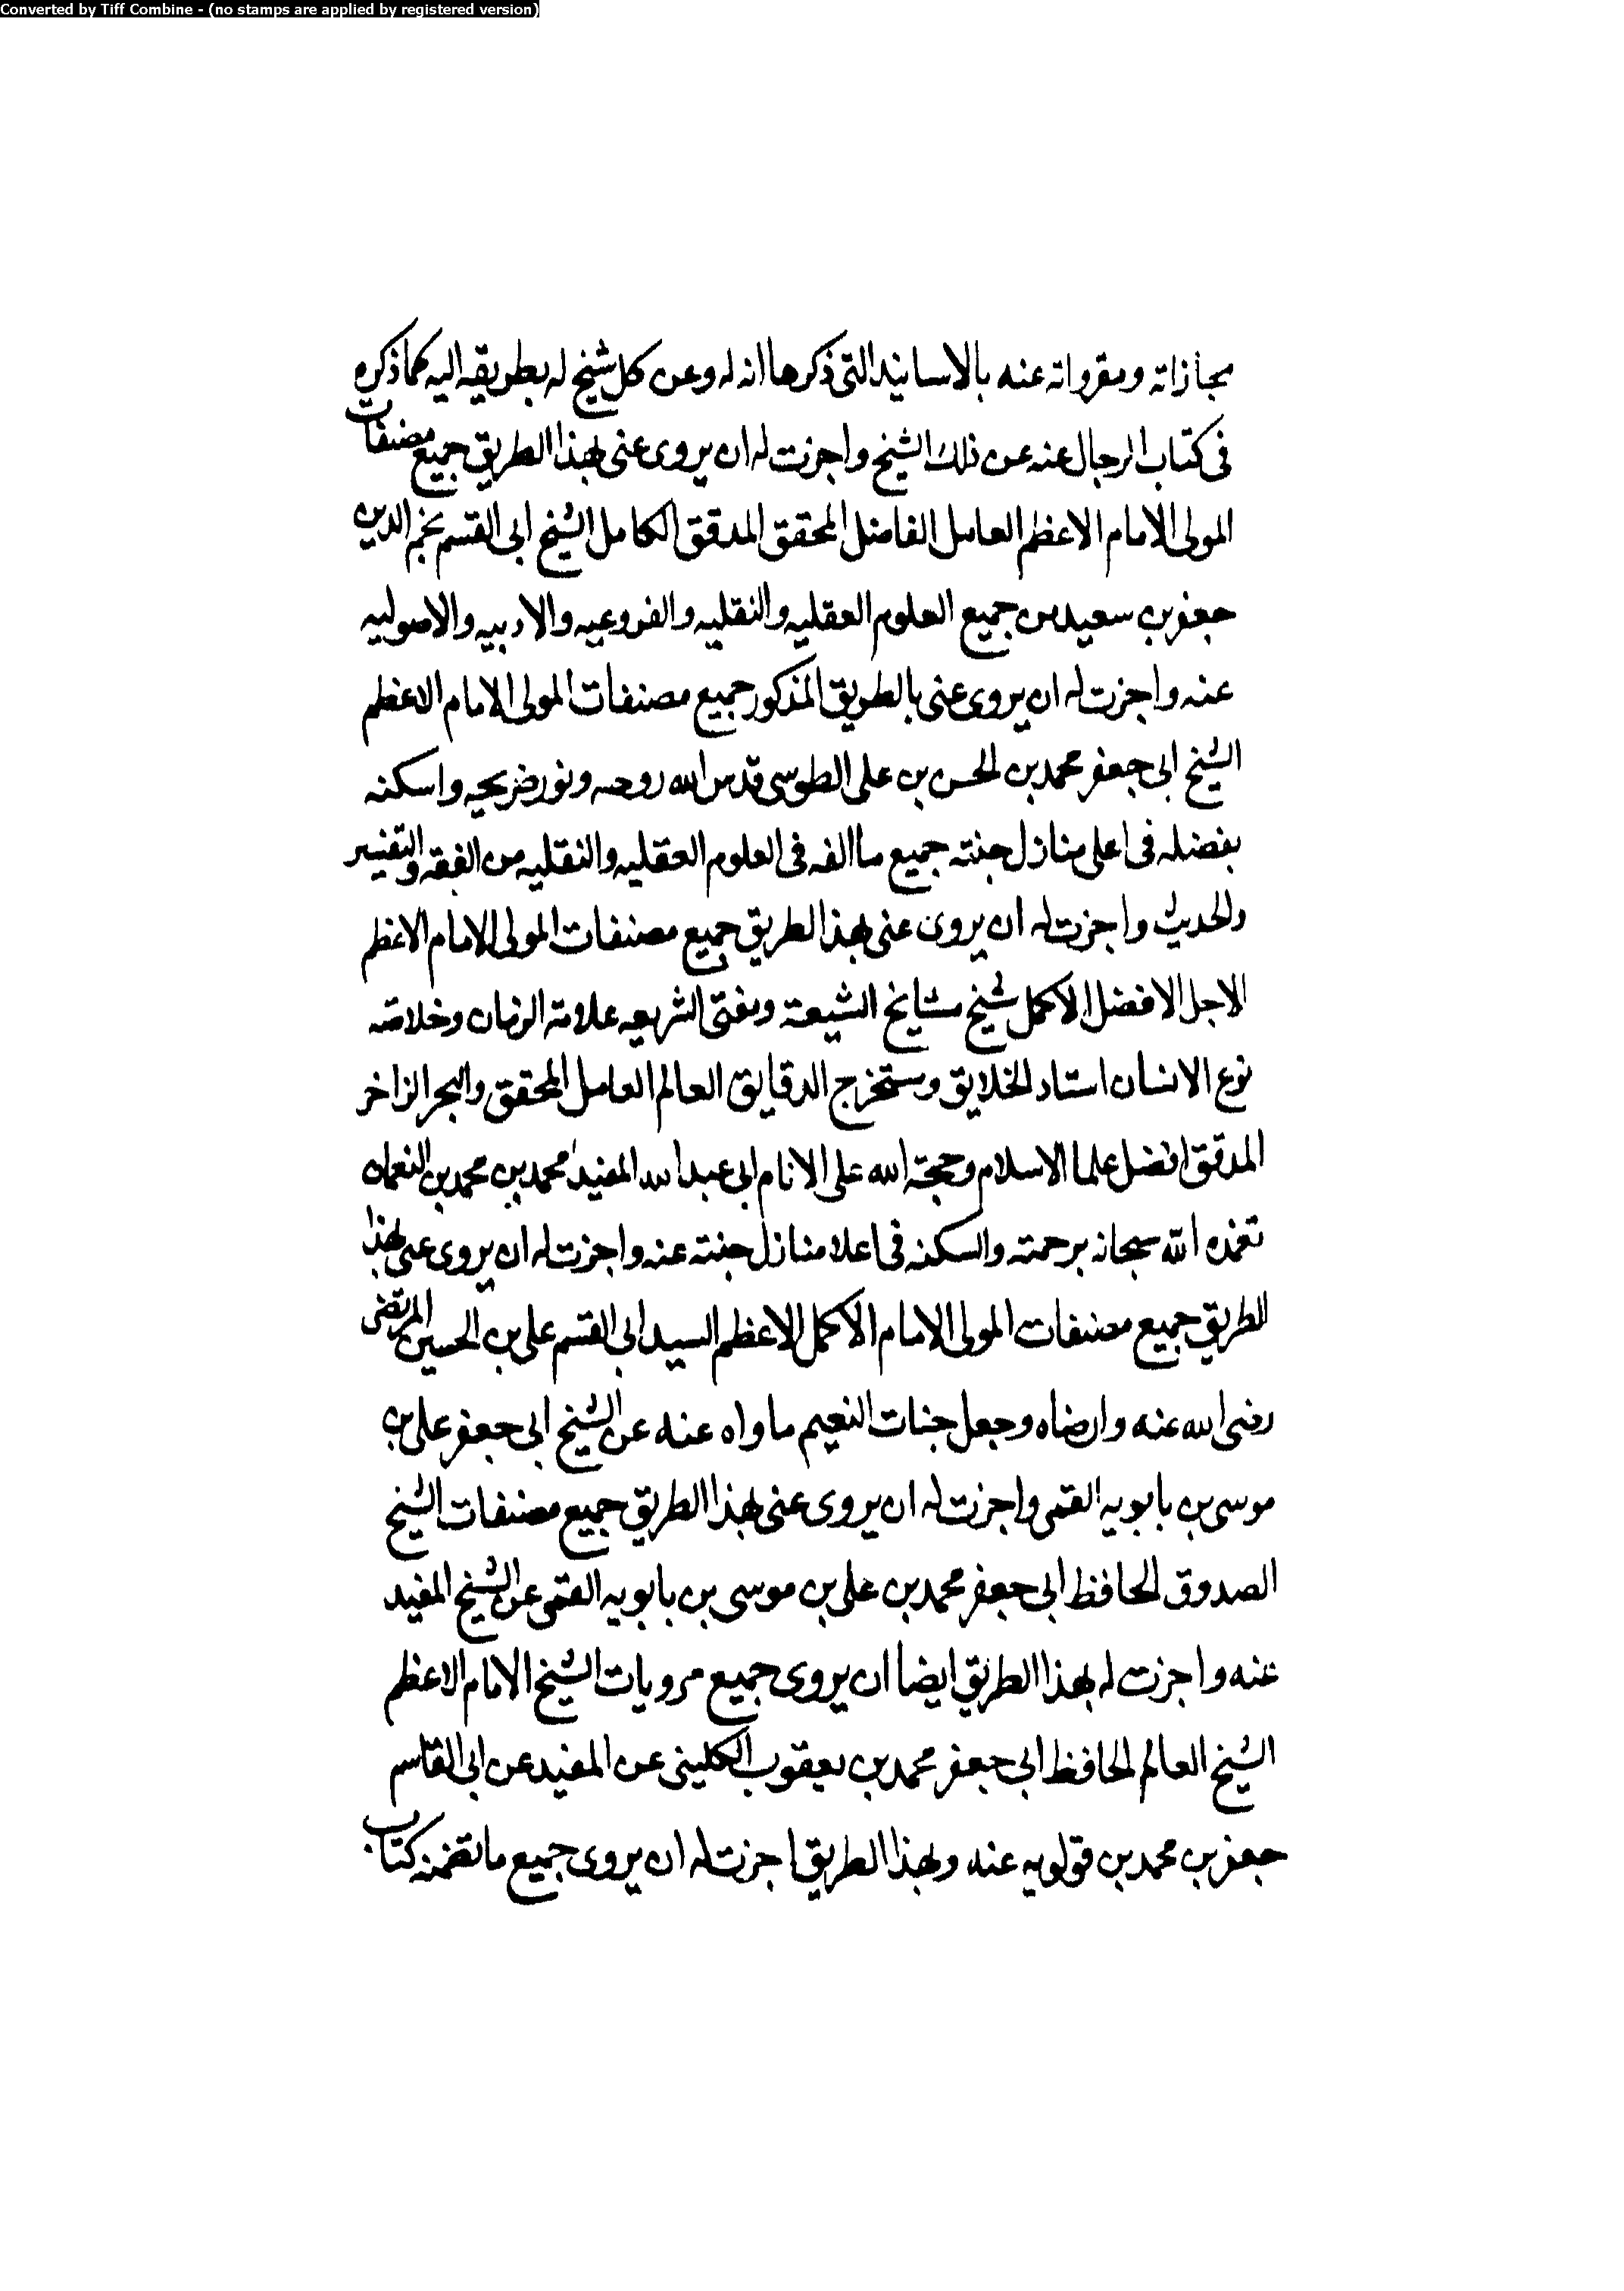 Converted by Tiff Combine - (no stamps are applied by registered version)
مجازاته ومقرواته عنه بالاسانيد التى ذكرها انه له وعن كل شيخ له بطريقه اليه كما ذكره
فى كتاب الرجال عنه عن ذلك الشيخ واجزت له ان يروى عنى بهذا الطريق جميع مصنفات
المولى الامام الاعظم العامل الفاضل المحقق المدقق الكامل الشيخ ابى القسم نجم الدين
جعفر بن سعيد من جميع العلوم العقليه والنقليه والفروعيه والادبيه والاصوليه
عنه واجزت له ان يروى عنى بالطريق المذكور جميع مصنفات المولى الامام الاعظم
الشيخ ابى جعفر محمد بن الحسن بن على الطوسى قدس الله روحه ونور ضريحه واسكنه
بفضله فى اعلى منازل جنته جميع ما الفه فى العلوم العقليه والنقليه من الفقه والتفسير
والحديث واجزت له ان يروى عنى بهذا الطريق جميع مصنفات المولى الامام الاعظم
الاجل الافضل الاكمل شيخ مشايخ الشيعة ومفتى الشريعه علامة الزمان وخلاصه
نوع الانسان استاد الخلايق ومستخرج الدقايق العالم العامل المحقق والبحر الزاخر
المدقق افضل علما الاسلام وحجة الله على الانام ابى عبد الله المفيد محمد بن محمد بن النعمان
تغمده الله سبحانه برحمته والسكنه فى اعلا منازل جنته عنه واجزت له ان يروى عنى بهذا
الطريق جميع مصنفات المولى الامام الاكمل الاعظم السيد ابى القسم على بن الحسين المرتضى
رضى الله عنه وارضاه وجعل جنات النعيم ماواه عنه عن الشيخ ابى جعفر على بن
موسى بن بابويه القمى واجزت له ان يروى عنى بهذا الطريق جميع مصنفات الشيخ
الصدوق الحافظ ابى جعفر محمد بن على بن موسى بن بابويه القمى عن الشيخ المفيد
عنه واجزت له بهذا الطريق ايضا ان يروى جميع مرويات الشيخ الامام الاعظم
الشيخ العالم الحافظ ابى جعفر محمد بن يعقوب الكلينى عن المفيد عن ابى القاسم
جعفر بن محمد بن قولويه عنه وبهذا الطريق اجزت له ان يروى جميع ما تضمنه كتاب